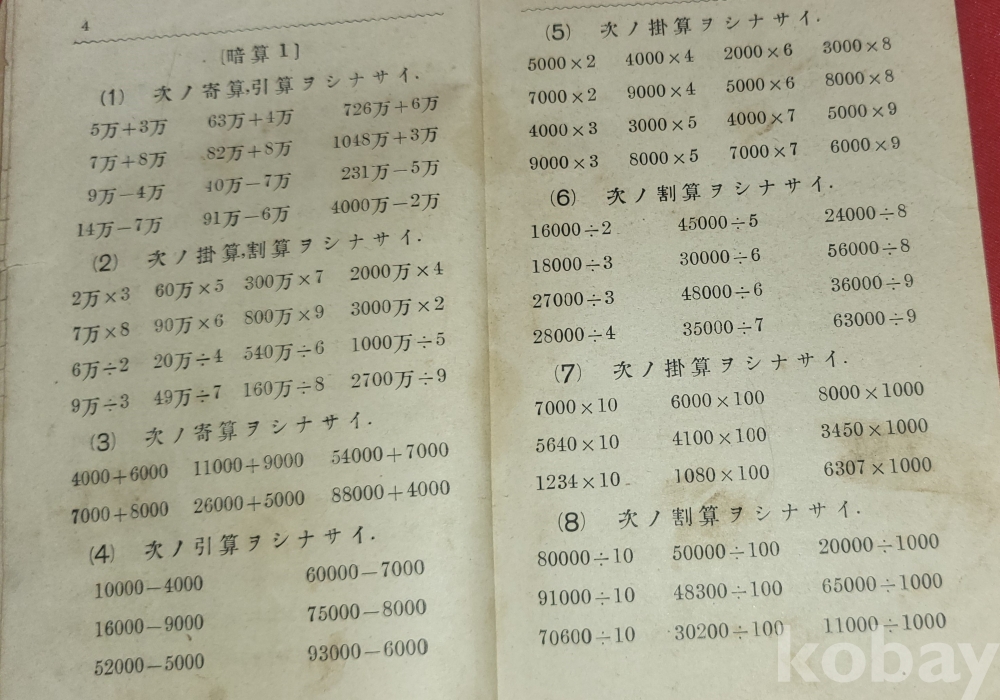 4
〔暗算1〕
(1) 次ノ寄算,引算ヲシナサイ.
5万+3万 63万+4万 726万+6万
7万+8万 82万+8万 1048万+3万
9万−4万 40万−7万 231万−5万
14万−7万 91万−6万 4000万−2万
(2) 次ノ掛算,割算ヲシナサイ.
2万×3 60万×5 300万×7 2000万×4
7万×8 90万×6 800万×9 3000万×2
6万÷2 20万÷4 540万÷6 1000万÷5
9万÷3 49万÷7 160万÷8 2700万÷9
(3) 次ノ寄算ヲシナサイ.
4000+6000 11000+9000 54000+7000
7000+8000 26000+5000 88000+4000
(4) 次ノ引算ヲシナサイ.
10000−4000 60000−7000
16000−9000 75000−8000
52000−5000 93000−6000
(5) 次ノ掛算ヲシナサイ.
5000×2 4000×4 2000×6 3000×8
7000×2 9000×4 5000×6 8000×8
4000×3 3000×5 4000×7 5000×9
9000×3 8000×5 7000×7 6000×9
(6) 次ノ割算ヲシナサイ.
16000÷2 45000÷5 24000÷8
18000÷3 30000÷6 56000÷8
27000÷3 48000÷6 36000÷9
28000÷4 35000÷7 63000÷9
(7) 次ノ掛算ヲシナサイ.
7000×10 6000×100 8000×1000
5640×10 4100×100 3450×1000
1234×10 1080×100 6307×1000
(8) 次ノ割算ヲシナサイ.
80000÷10 50000÷100 20000÷1000
91000÷10 48300÷100 65000÷1000
70600÷10 30200÷100 11000÷1000
kobay